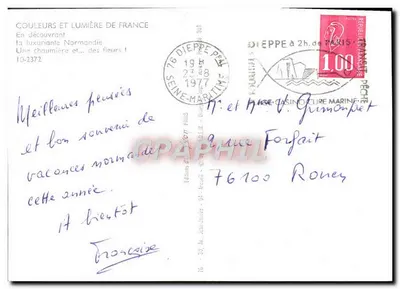 COULEURS ET LUMIÈRE DE FRANCE
En découvrant
la luxuriante Normandie
Une chaumière et... des fleurs !
10-2372
Meilleures pensées
et bon souvenir de
vacances normandes
cette année.
A bientôt
Françoise
76 DIEPPE PPAL
19 H
23-8
1977
SEINE-MARITIME
DIEPPE à 2h. de PARIS
PLAGE-CASINO-CURE MARINE
1,00
Mr et Mme V.
9 rue Forfait
76100 Rouen